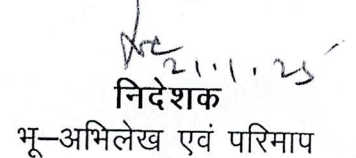 21.1.25
निदेशक
भू-अभिलेख एवं परिमाप